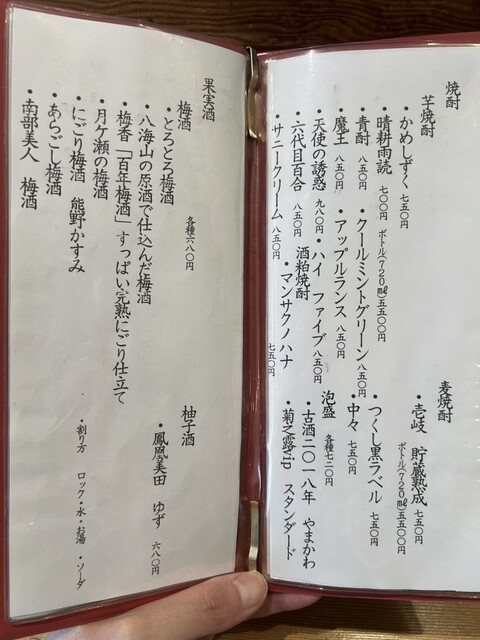 焼酎
芋焼酎
・かめしずく 七五〇円
・晴耕雨読 七〇〇円 ボトル(720㎖)五五〇〇円
・青酎 八五〇円
・クールミントグリーン 八五〇円
・魔王 八五〇円
・アップルランス 八五〇円
・天使の誘惑 九八〇円
・ハイ ファイブ 八五〇円
・六代目百合 八五〇円
・サニークリーム 八五〇円
酒粕焼酎
・マンサクノハナ 七五〇円
麦焼酎
・壱岐 貯蔵熟成 七五〇円
ボトル(720㎖)五五〇〇円
・つくし黒ラベル 七五〇円
・中々 七五〇円
泡盛 各種七二〇円
・古酒二〇一八年 やまかわ
・菊之露vip スタンダード
果実酒
梅酒 各種六八〇円
・とろとろ梅酒
・八海山の原酒で仕込んだ梅酒
・梅香「百年梅酒」すっぱい完熟にごり仕立て
・月ケ瀬の梅酒
・にごり梅酒 熊野かすみ
・あらごし梅酒
・南部美人 梅酒
柚子酒
・鳳凰美田 ゆず 六八〇円
・割り方 ロック・水・お湯・ソーダ